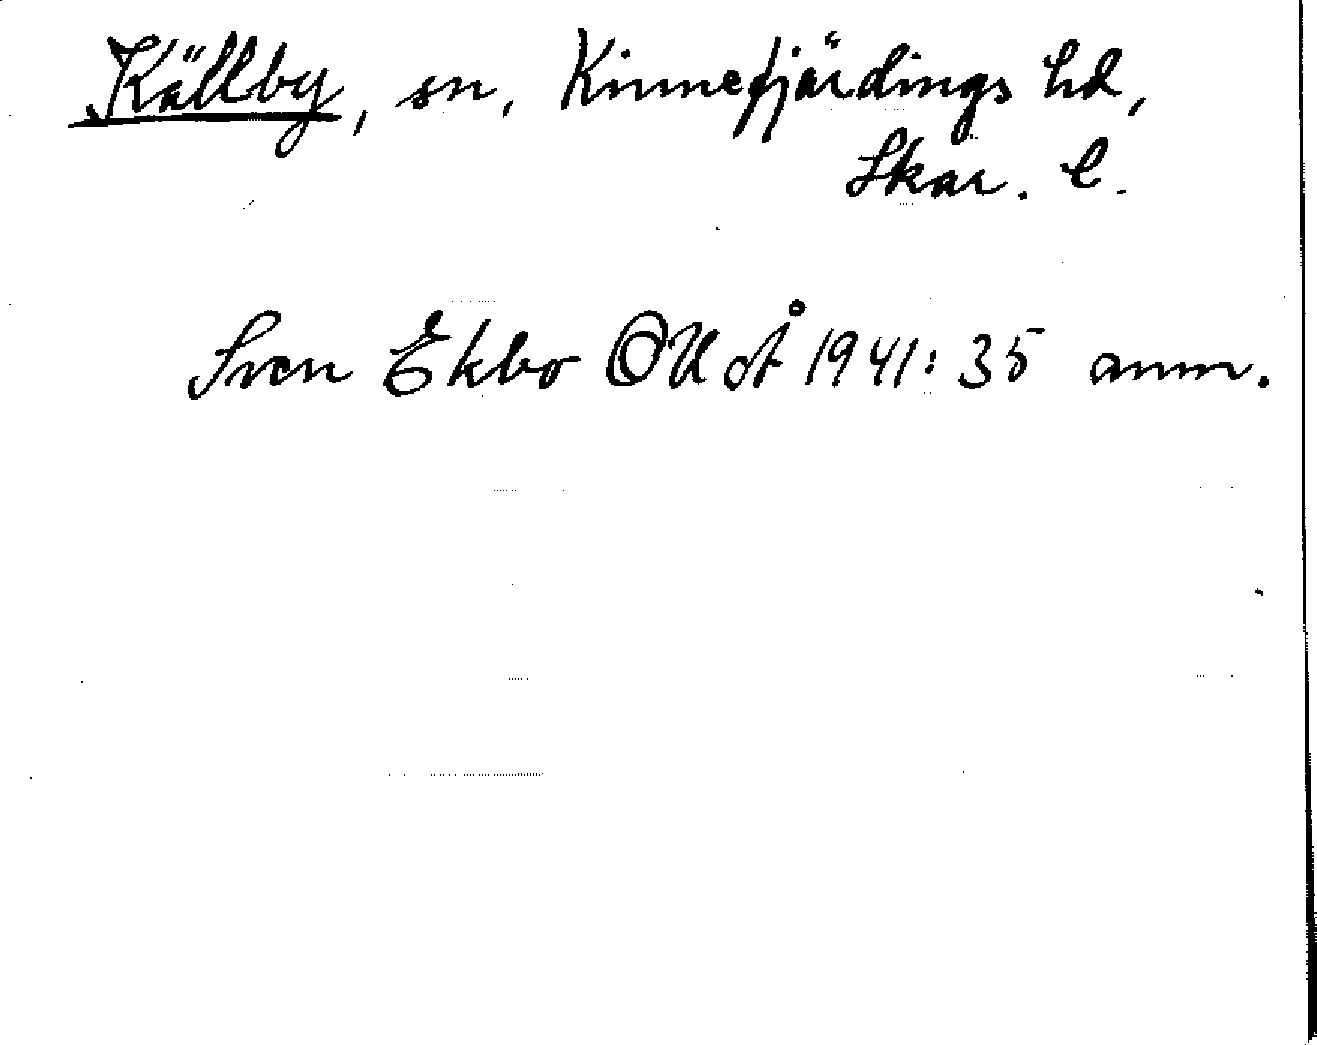 Källby, sn, Kinnefjärdings hd,
Skar. l.
Sven Ekbo OUoÅ 1941: 35 anm.